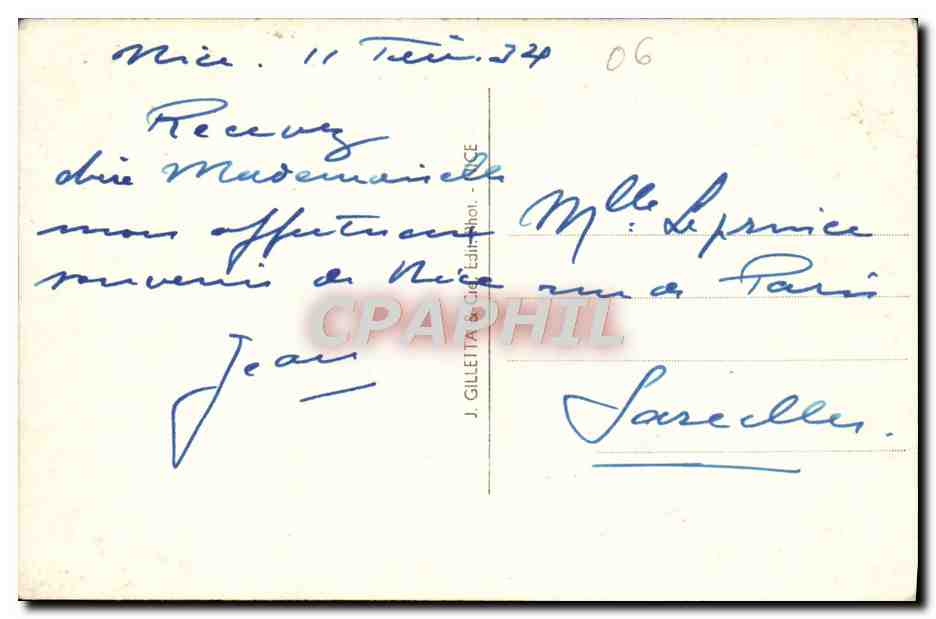 Nice. 11 Fév. 34
06
Recevez
chère Mademoiselle
mon affectueux
souvenir de Nice
Jean
Mlle: Leprince
rue de Paris
Sarcelles.
J. GILLETTA & Cie, Edit. Phot. - NICE
CPAPHIL